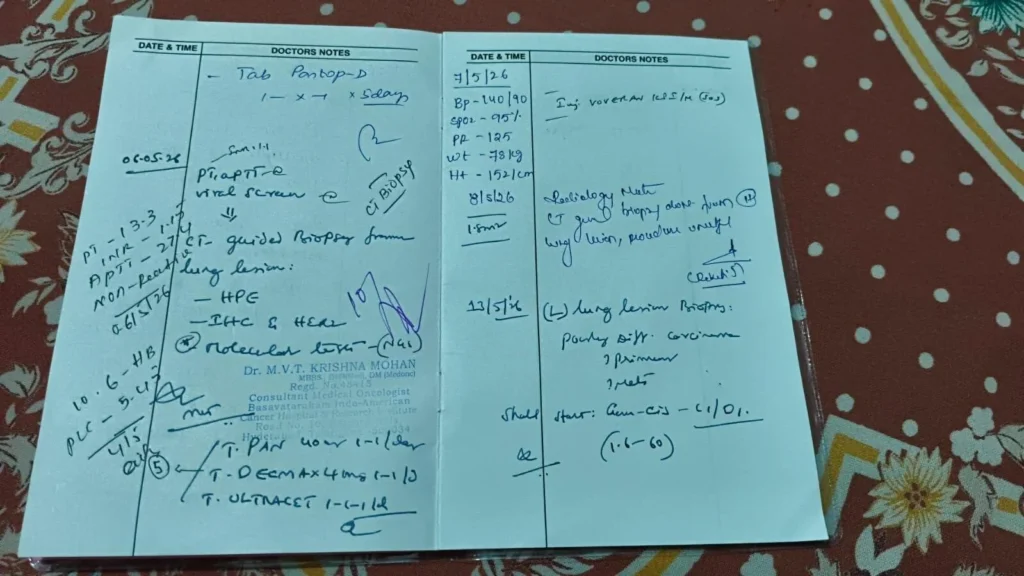 DATE & TIME
DOCTORS NOTES
- Tab Pantop-D
1 - x - 1 x 5days
06.05.26
PT, aPTT - 
viral screen
CT Biopsy
PT - 13.3
INR - 1.17
APTT - 27.4
06/5/26
CT- guided Biopsy from
lung lesion:
- HPE
- IHC & HER2
Molecular tests - (NGS)
Dr. M.V.T. KRISHNA MOHAN
Regd. No.
Consultant Medical Oncologist
Basavatarakam Indo-American
Cancer Hospital & Research Institute
10.6 - HB
PLC - 5.4
4/5
5
T. PAN 40mg 1-1/day
T. DECMAX 4mg 1-1/D
T. ULTRACET 1-1-1/d
DATE & TIME
DOCTORS NOTES
7/5/26
BP - 140/90
SPO2 - 95%
PR - 125
Wt - 78kg
Ht - 152/cm
Inj VOVERAN
8/5/26
Radiology Note
CT guid biopsy done from
lung lesion, procedure uneventful
13/5/26
(L) lung lesion Biopsy:
Poorly Diff. carcinoma
? primary
? mets
Start: Gem-Cis - C1/D1.
(1.6-60)